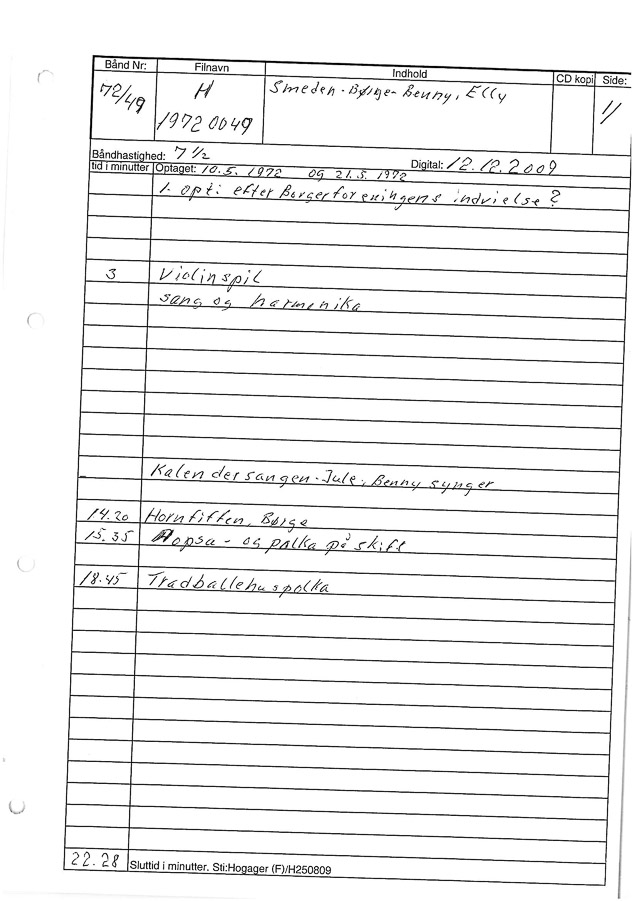 Bånd Nr: Filnavn Indhold CD kopi Side:
72/49 H Smeden - Børge - Benny, Elly 1/
19720049
Båndhastighed: 7 1/2 Digital: 12.12.2009
tid i minutter Optaget: 10.5. 1972 og 21.5. 1972
1. opt: efter Borgerforeningens indvielse?
3 Violinspil
sang og harmonika
Kalendersangen - Jule, Benny synger
14.20 Hornfiffen, Børge
15.35 Hopsa - og polka på skift
18.45 Tradballehuspolka
22.28 Sluttid i minutter. Sti:Hogager (F)/H250809